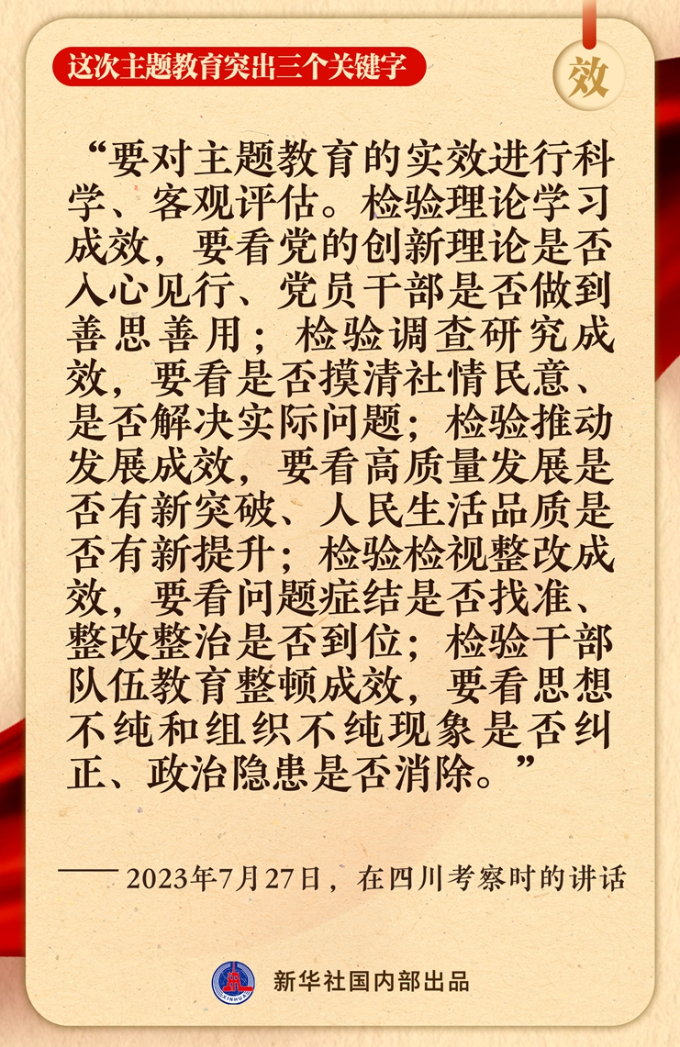 这次主题教育突出三个关键字
效
“要对主题教育的实效进行科
学、客观评估。检验理论学习
成效，要看党的创新理论是否
入心见行、党员干部是否做到
善思善用；检验调查研究成
效，要看是否摸清社情民意、
是否解决实际问题；检验推动
发展成效，要看高质量发展是
否有新突破、人民生活品质是
否有新提升；检验检视整改成
效，要看问题症结是否找准、
整改整治是否到位；检验干部
队伍教育整顿成效，要看思想
不纯和组织不纯现象是否纠
正、政治隐患是否消除。”
——2023年7月27日，在四川考察时的讲话
XINHUA
新华社国内部出品